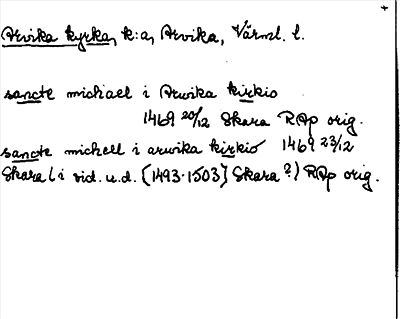 Arvika kyrka, k:a, Arvika, Värml. l.
sancte michael i Arwika kirkio
1469 20/12 Skara RAp orig.
sancte michell i arwika kirkio 1469 23/12
Skara (i vid. u.d. [1493-1503] Skara?) RAp orig.